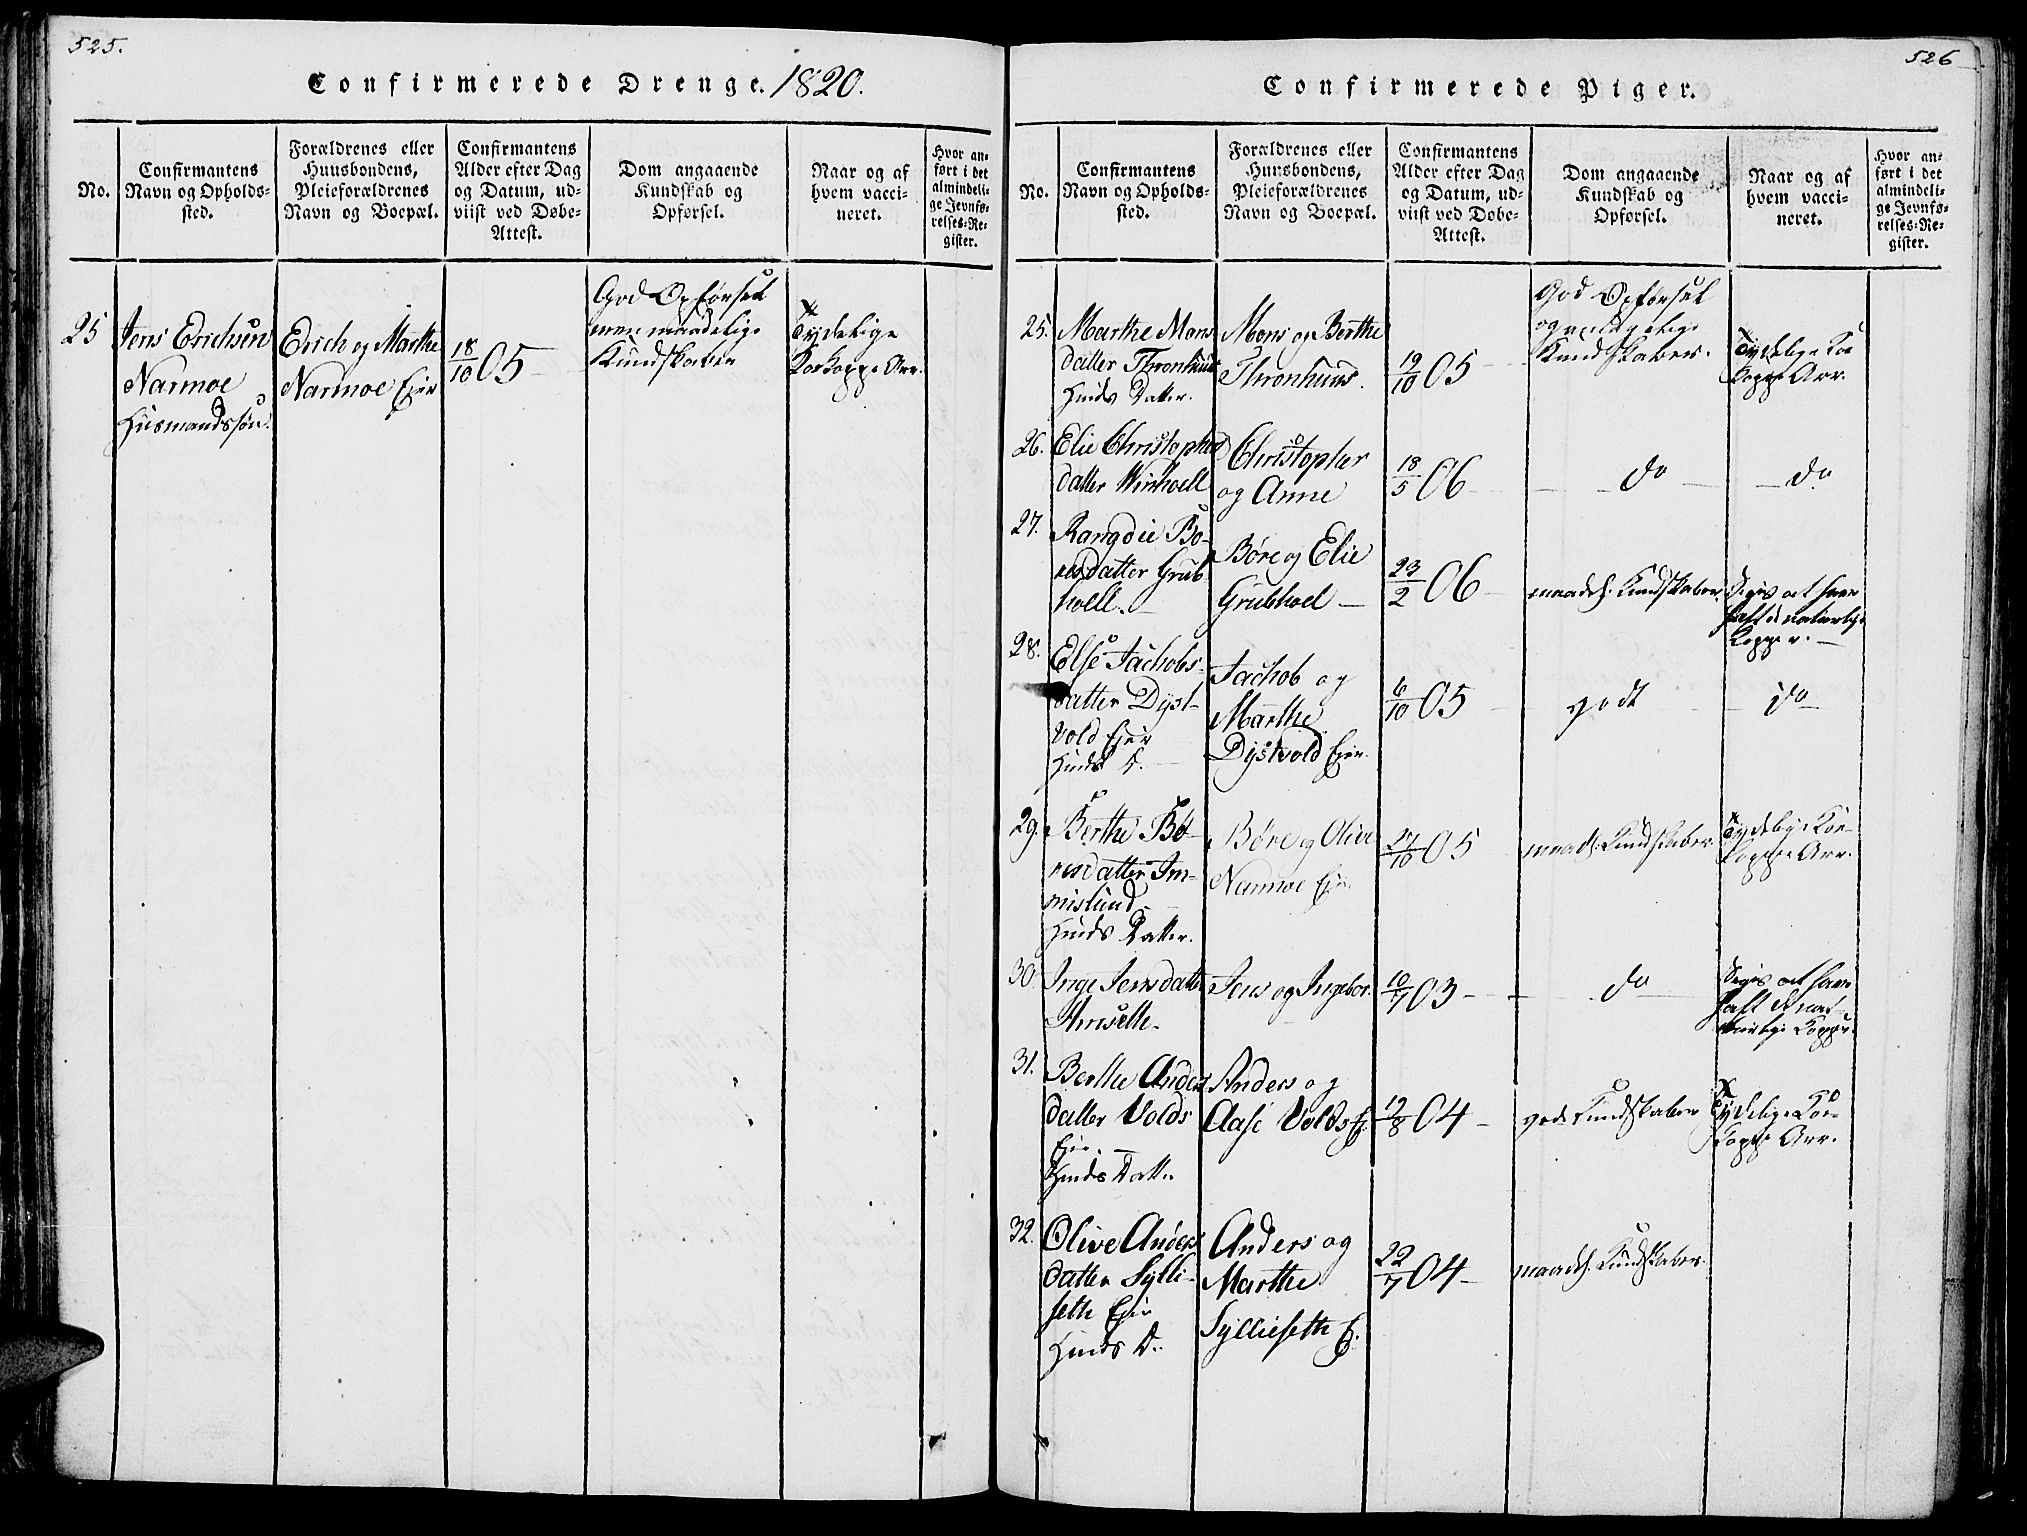 525.
Confirmerede Drenge. 1820.
No.
Confirmantens
Navn og Opholds-
sted.
Forældrenes eller
Huusbondens,
Pleieforældrenes
Navn og Boepæl.
Confirmantens
Alder efter Dag
og Datum, ud-
viist ved Døbe-
Attest.
Dom angaaende
Kundskab og
Opførsel.
Naar og af
hvem vacci-
neret.
Hvor an-
ført i det
almindeli-
ge Jevnfø-
relses-Re-
gister.
25
Jens Erichsen
Narmoe
Huusmandssøn.
Erich og Marthe
Narmoe Ejer
18/10 05
God Opførsel
men maadelige
Kundskaber
Tydelige
Kokoppe Arr.
526
Confirmerede Piger.
No.
Confirmantens
Navn og Opholds-
sted.
Forældrenes eller
Huusbondens,
Pleieforældrenes
Navn og Boepæl.
Confirmantens
Alder efter Dag
og Datum, ud-
viist ved Døbe-
Attest.
Dom angaaende
Kundskab og
Opførsel.
Naar og af
hvem vacci-
neret.
Hvor an-
ført i det
almindeli-
ge Jevnfø-
relses-Re-
gister.
25.
Marthe Mons
datter Thronhuus
Huds Datter.
Mons og Berthe
Thronhuus.
19/10 05
God Opførsel
Kundskaber.
Tydelige Koe
Koppe Arr.
26.
Elie Christophers
datter
Christopher
og Anne
18/5 06
do
do
27.
Rangdie Bø-
resdatter Grub
hoell.
Børe og Elie
Grubhoel
23/2 06
maadel. Kundskaber
Siges at have
haft de naturlige
Kopper.
28.
Else Jachobs-
datter Dyst-
vold Ejer
Huds D.
Jachob og
Marthe
Dystvold Ejer.
6/10 05
godt
do
29.
Berthe Bø-
resdatter Im-
mislund
Huds Datter.
Børe og Olive
Narmoe Ejer
27/10 05
maadel. Kundskaber
Tydelige Koe-
koppe Arr.
30.
Inge Jensdatter
Jens og Ingebor.
10/7 03
do
Siges at have
haft de nat-
urlige Kopper.
31.
Berthe Anders
datter Volds
Ejer.
Huds Datter
Anders og
Aase Volds Ej.
19/8 04
gode Kundskaber
Tydelige Koe-
koppe Arr.
32.
Olive Anders
datter Sylli-
seth Ejer
Huds D.
Anders og
Marthe
Syllieseth Ej.
22/7 04
maadel. Kundskaber.